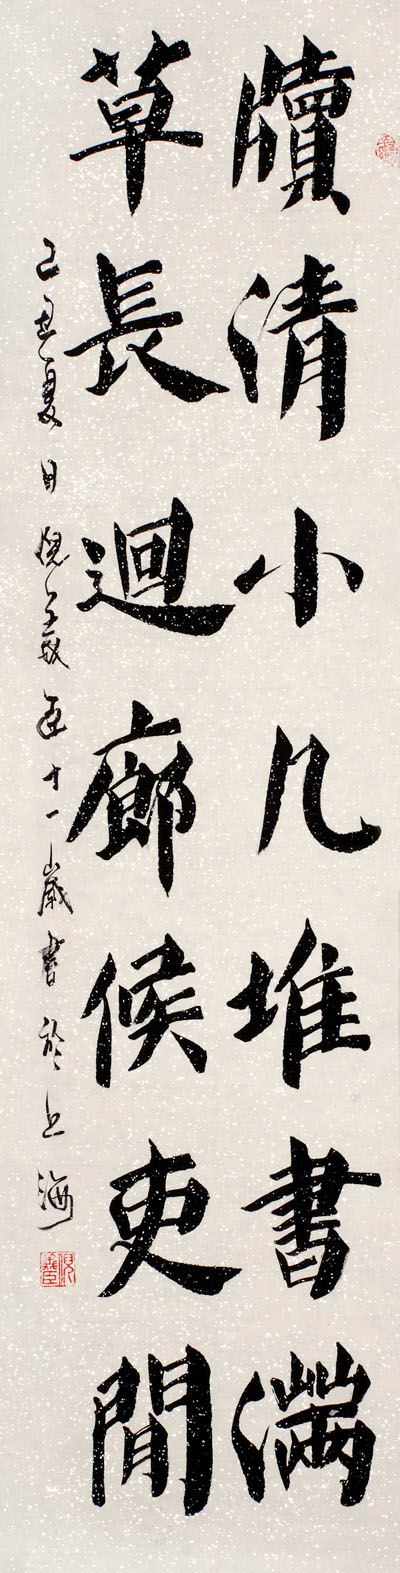 牘清小几堆書滿
草長迴廊候吏閒
己丑夏日倪五十一歲書於上海